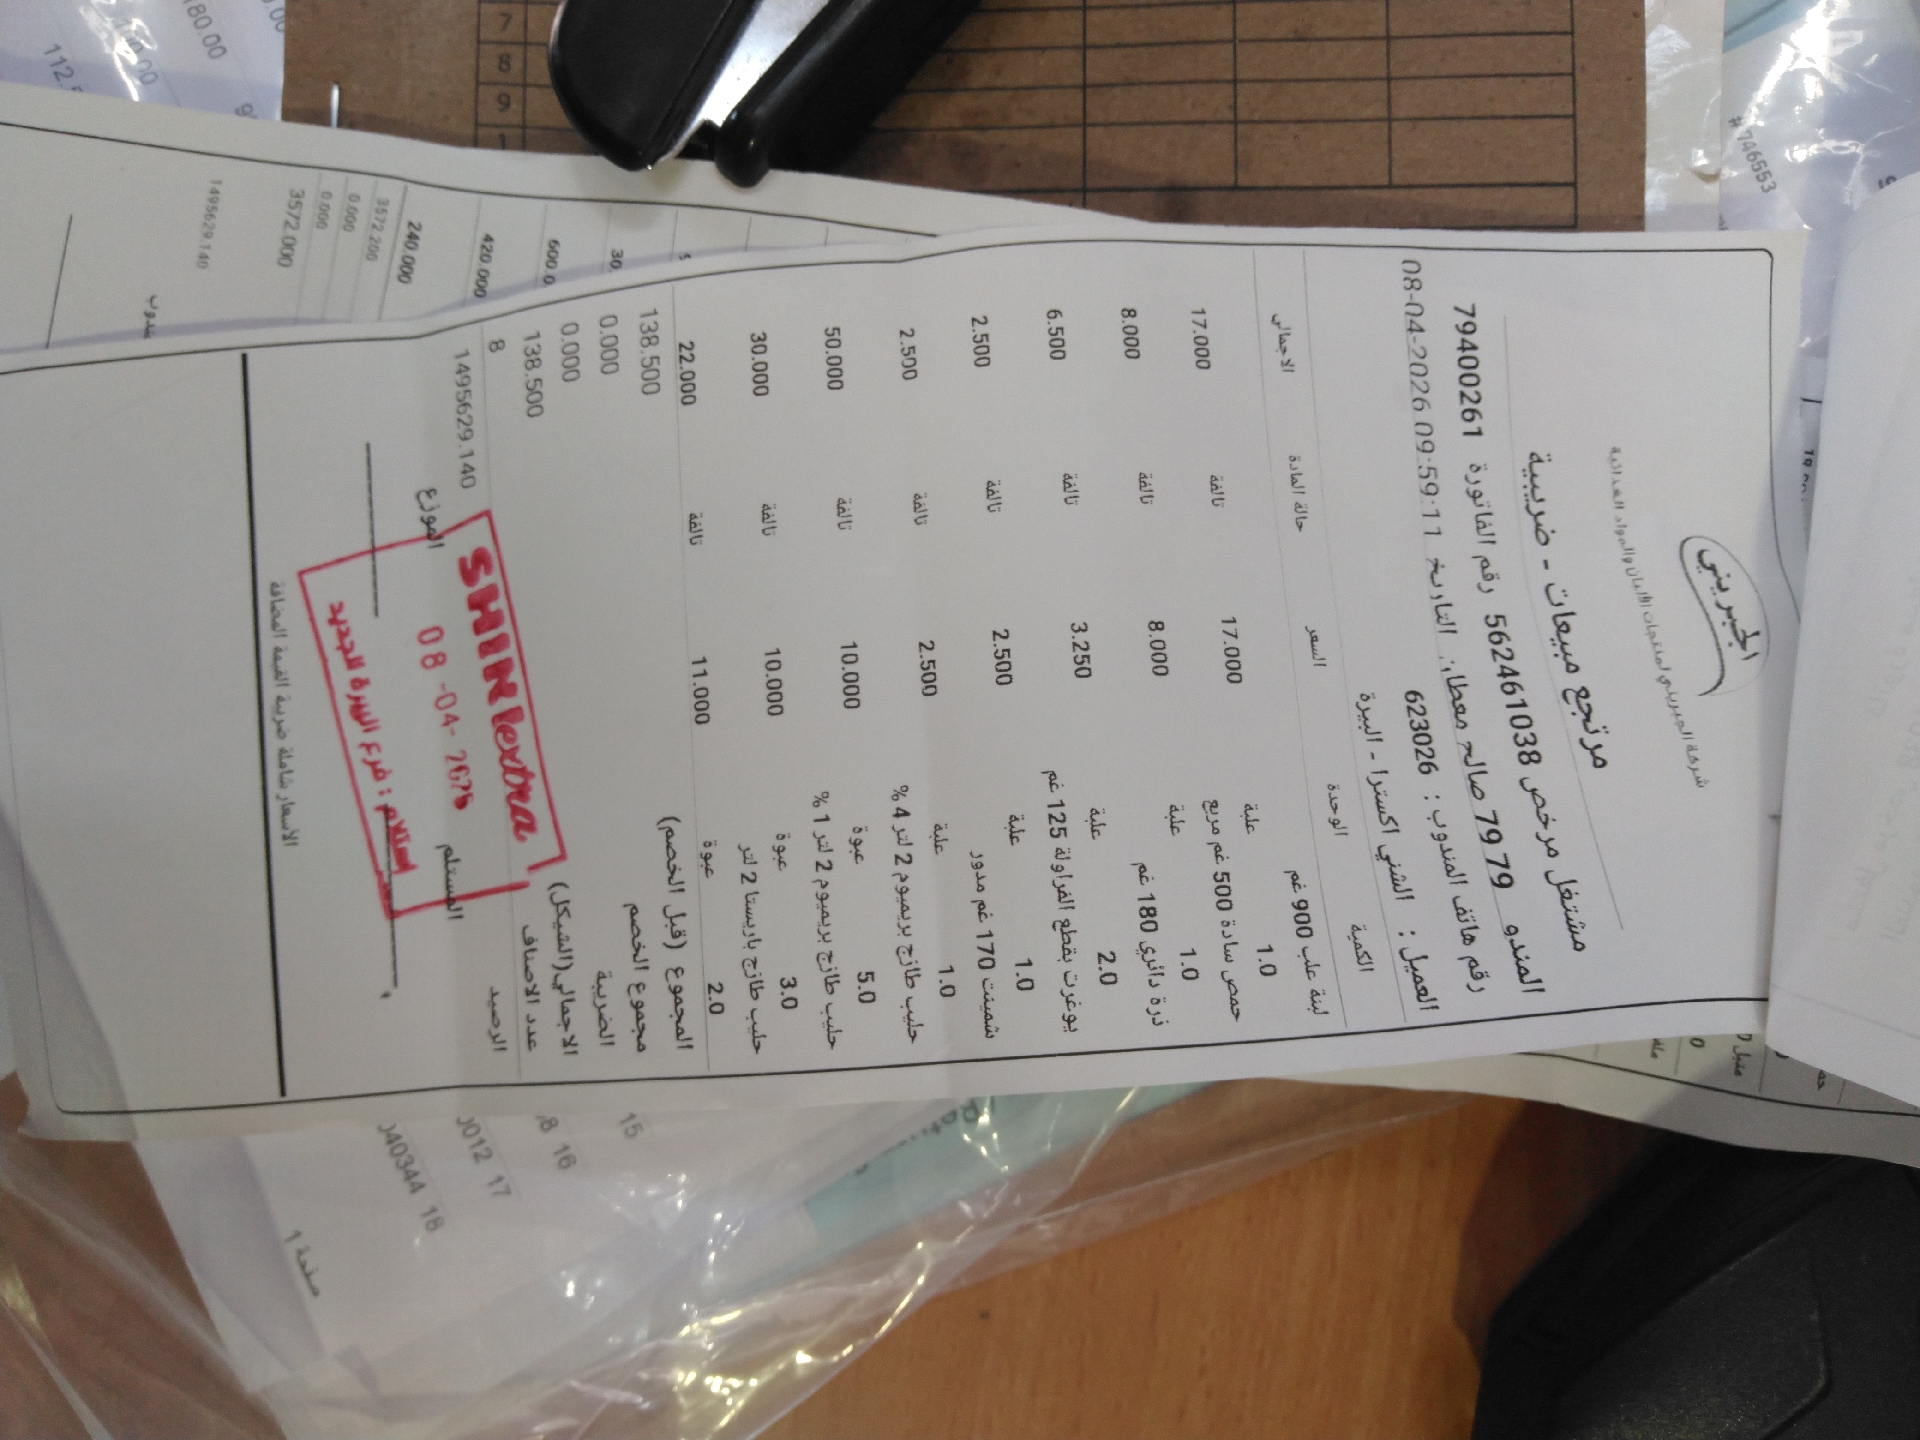 الجبريني
شركة الجبريني لمنتجات الألبان والمواد الغذائية
مرتجع مبيعات - ضريبية
مشتغل مرخص 562461038 رقم الفاتورة 79400261
المندو 79 79 صالح معطان التاريخ 08-04-2026 09:59:11
رقم هاتف المندوب : 623026
العميل : الشني اكسترا - البيرة
الكمية الوحدة السعر حالة المادة الاجمالي
لبنة علب 900 غم
1.0 علبة 17.000 تالفة 17.000
حمص سادة 500 غم مربع
1.0 علبة 8.000 تالفة 8.000
ذرة دائري 180 غم
2.0 علبة 3.250 تالفة 6.500
يوغرت بقطع الفراولة 125 غم
1.0 علبة 2.500 تالفة 2.500
شمينت 170 غم مدور
1.0 علبة 2.500 تالفة 2.500
حليب طازج بريميوم 2 لتر 4 %
5.0 عبوة 10.000 تالفة 50.000
حليب طازج بريميوم 2 لتر 1 %
3.0 عبوة 10.000 تالفة 30.000
حليب طازج باريستا 2 لتر
2.0 عبوة 11.000 تالفة 22.000
المجموع (قبل الخصم) 138.500
مجموع الخصم 0.000
الضريبة 0.000
الاجمالي(الشيكل) 138.500
عدد الاصناف 8
الرصيد 1495629.140
المستلم الموزع
SHINI extra
08 -04- 2026
إستلام : فرع البيرة الجديد
الاسعار شاملة ضريبة القيمة المضافة
7
8
9
600.0
420.000
240.000
3572.200
0.000
0.000
3572.000
1495629.140
# 746553
180.00
15
16
17
18
صفحة 1